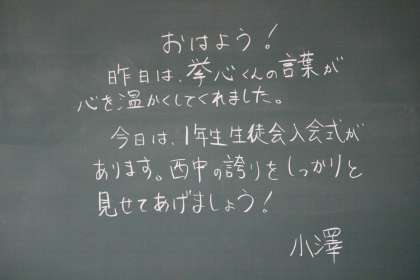 おはよう!
昨日は、挙心くんの言葉が
心を温かくしてくれました。
今日は、1年生生徒会入会式が
あります。西中の誇りをしっかりと
見せてあげましょう!
小澤